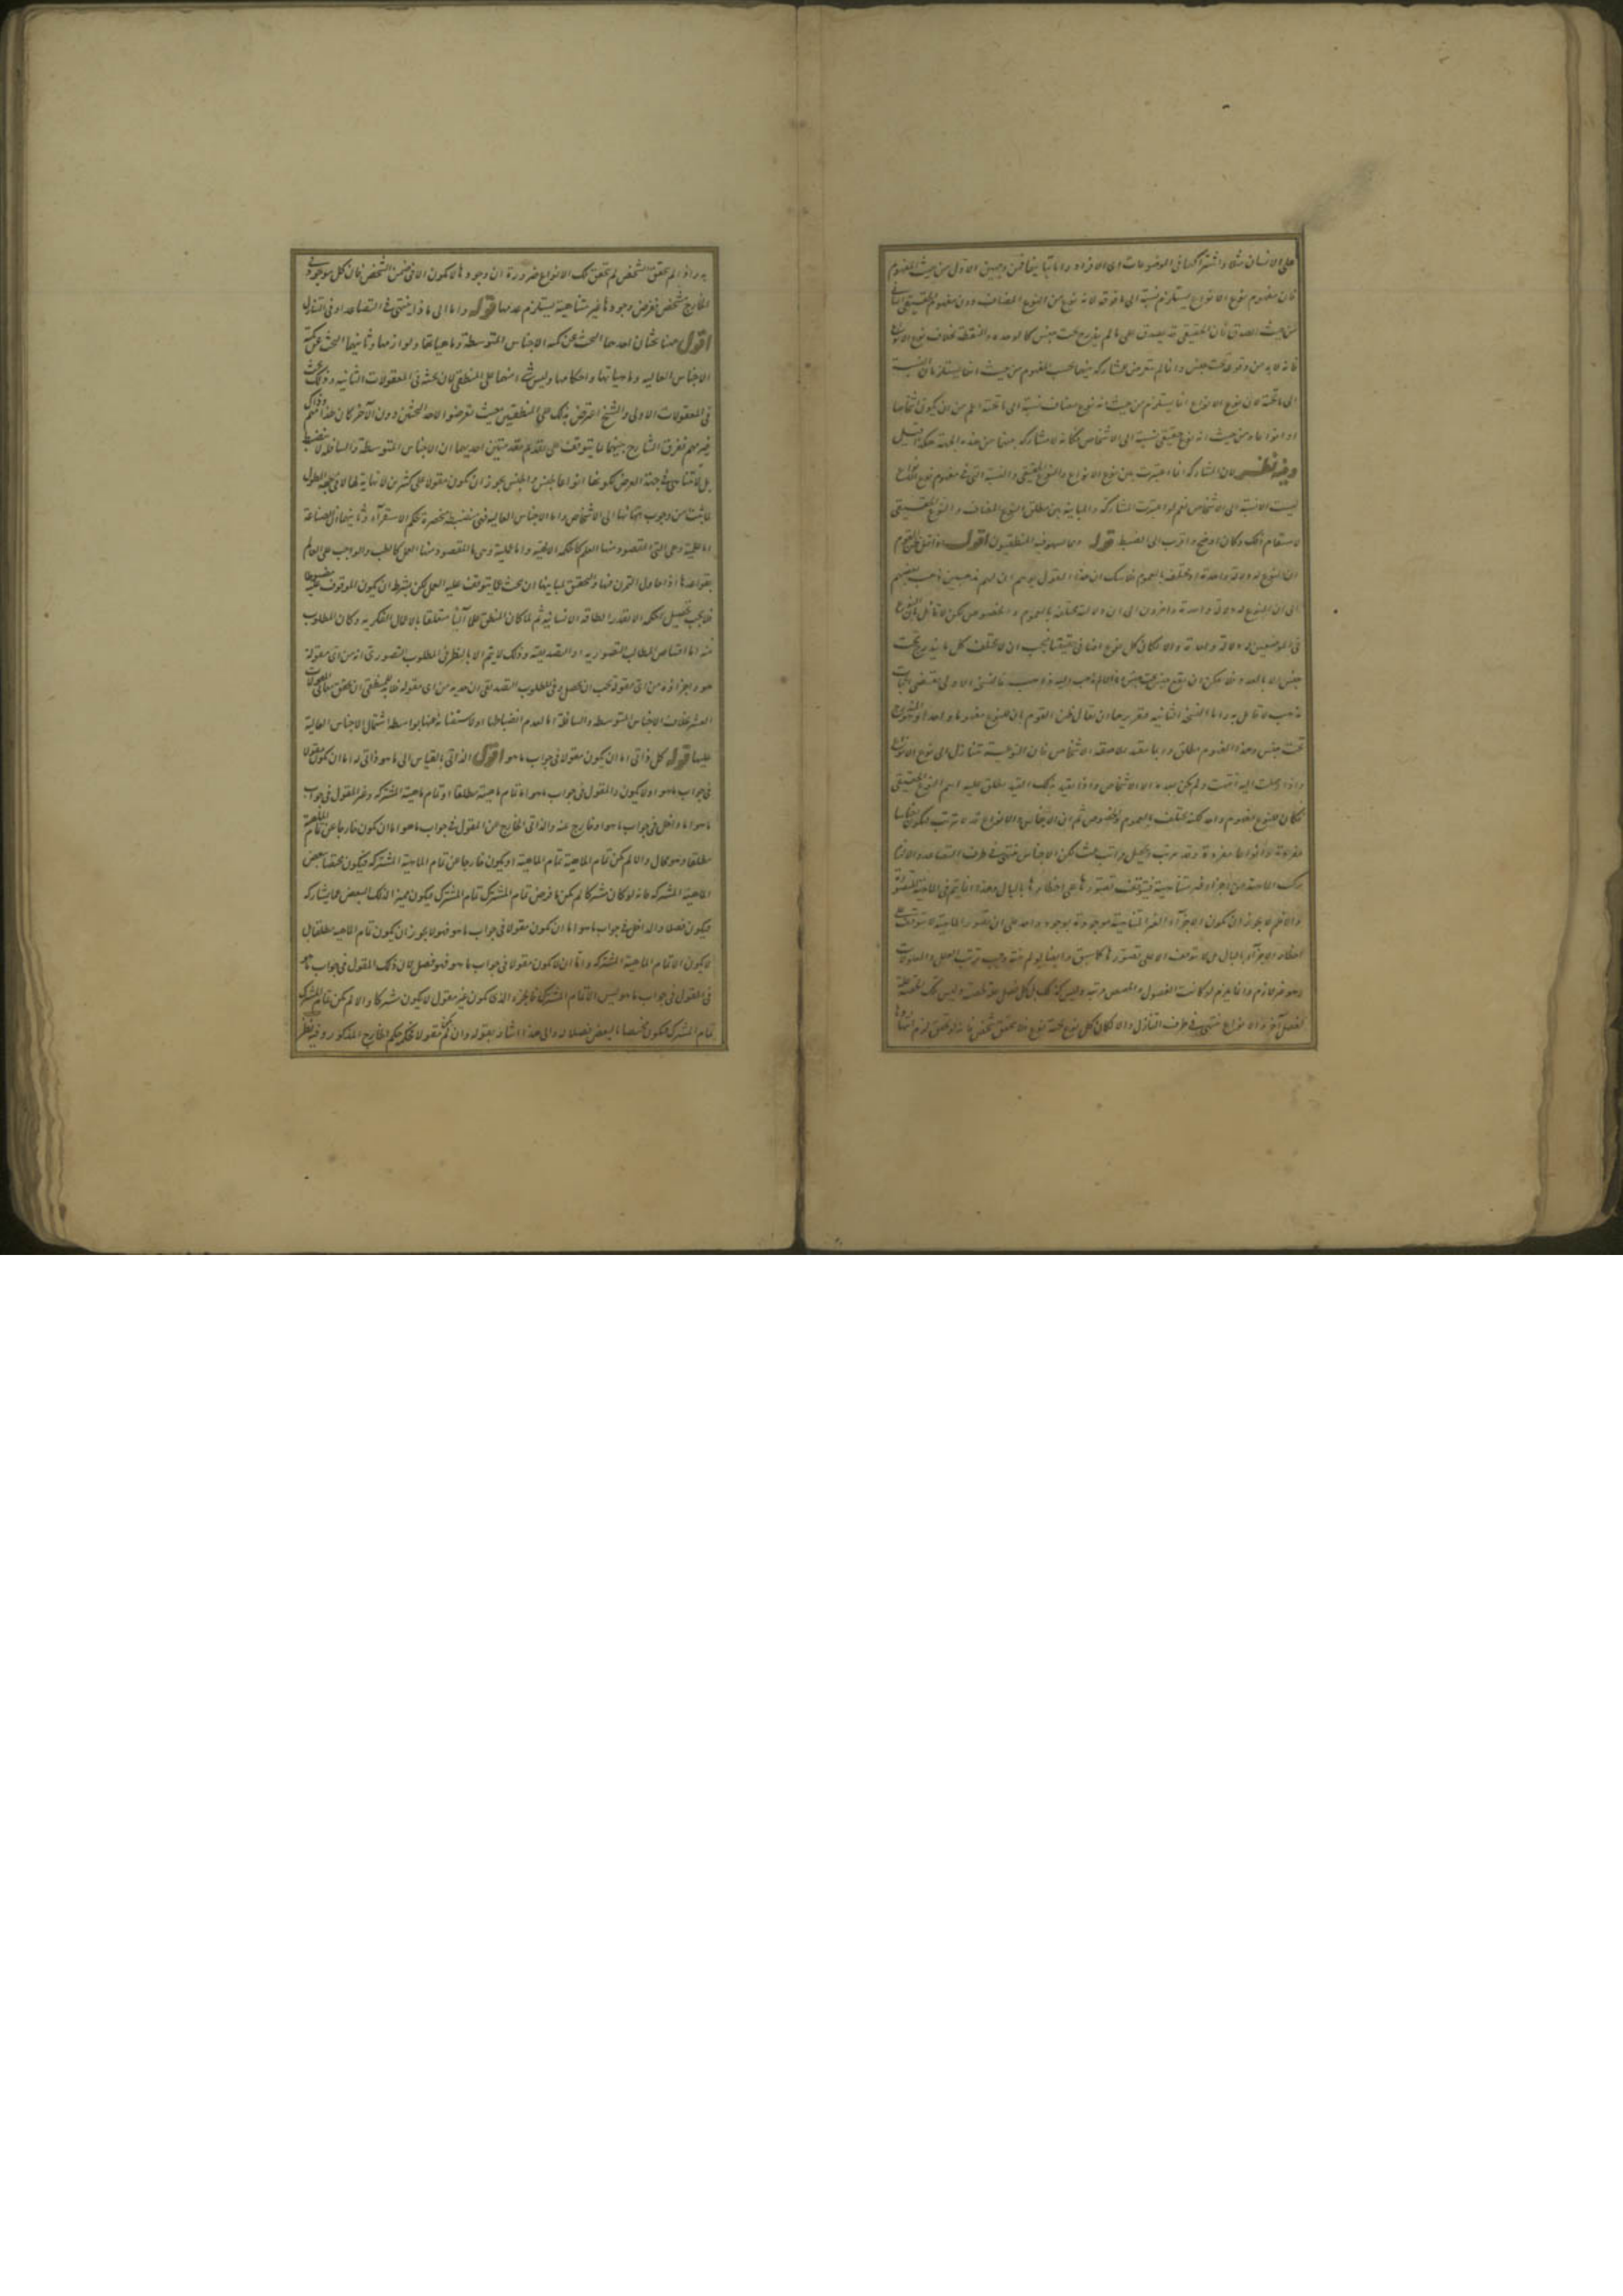 على الانسان مثلا واشتراكهما فى الموضوعات اى الافراد واما تباينهما فمن وجهين الاول من حيث المفهوم
فان مفهوم نوع الانواع يستلزم نسبة الى ما فوقه لانه نوع من النوع المضاف دون مفهوم الحقيقى الثانى
من حيث الصدق فان الحقيقى قد يصدق على ما لم يندرج تحت جنس كالوحدة والنقطة بخلاف نوع الانواع
فانه لابد من وقوعه تحت جنس وانما لم يتعرض لمشاركه بينهما بحسب المفهوم من حيث انهما يستلزمان النسبة
الى ما تحته لان نوع الانواع انما يستلزم من حيث انه نوع مضاف نسبة الى ما تحته اعم من ان يكون اشخاصا
او انواعا ومن حيث انه نوع حقيقى نسبة الى الاشخاص فكانه لا مشاركه بينهما من هذه الجهة هكذا قيل
وفيه نظر لان المشاركه انما اعتبرت بين نوع الانواع والنوع الحقيقى والنسبة التى فى مفهوم نوع الانواع
ليست الا نسبة الى الاشخاص نعم لو اعتبرت المشاركة والمباينة بين مطلق النوع المضاف والنوع الحقيقى
لاستقام ذلك وكان اوضح واقرب الى الضبط قوله ومما يسهو فيه المنطقيون اقول
ان النوع له دلالة واحدة او مختلفة بالعموم فلا شك ان هذا القول يوهم ان لهم مذهبين ذهب بعضهم
الى ان النوع له دلالة واحدة واخرون الى ان دلالته مختلفة بالعموم والخصوص لكن لا قائل بان النوع
فى الموضعين له دلالة واحدة والا لكان كل نوع اضافى حقيقيا فيجب ان لا يختلف كل ما يندرج تحت
جنس الا بالعدد فلا يمكن ان يقع جنس تحت جنس
مذهب لا قائل به واما النسخة الثانية فتقريرها ان يقال ظن القوم ان للنوع مفهوما واحدا
تحت جنس وهذا المفهوم مطلق وربما يقيد بملاصقة الاشخاص فان النوعية تتنازل الى نوع الانواع
واذا وصلت اليه انتهت ولم يكن بعده الا الاشخاص واذا تقيد بذلك القيد يطلق عليه اسم النوع الحقيقى
فكان للنوع مفهوم واحد لكنه يختلف بالعموم والخصوص ثم ان الاجناس والانواع قد لا تترتب فيكون اجناسا
مفردة او انواعا مفردة وقد تترتب لكن الاجناس تنتهى فى طرف التصاعد والا
تركب الماهية من اجزاء غير متناهية فيتوقف تصورها على اخطارها بالبال وهذا انما يتم فى الماهية المتصورة
والا فلم لا يجوز ان يكون الاجزاء الغير المتناهية موجودة بوجود واحد على ان تصور الماهية لا يتوقف على
اخطار الاجزاء بالبال بل لا يتوقف الا على تصورها كما سبق وايضا يلزم منه وجوب ترتب العلل والمعلولات
وهو غير لازم وانما يلزم لو كانت الفصول والحصص مرتبة وليس كذلك بل كل فصل علة لحصة وليس تلك الحصة علة
لفصل آخر والانواع تنتهى فى طرف التنازل والا لكان كل نوع تحته نوع فلا يتحقق شخص فانه لو تحقق لزم انتهاؤها
به واذا لم يتحقق الشخص لم يتحقق تلك الانواع ضرورة ان وجودها لا يكون الا فى ضمن الشخص فان كل موجود فى
الخارج مشخص ففرض وجودها غير متناهية يستلزم عدمها قوله واما الى ما ذا ينتهى فى التصاعد او فى التنازل
اقول هنا بحثان احدهما البحث عن كمية الاجناس المتوسطة وماهياتها ولوازمها وثانيهما البحث عن كمية
الاجناس العالية وماهياتها واحكامها وليس شىء منهما على المنطقى لان بحثه فى المعقولات الثانيه وذلك بحث
فى المعقولات الاولى والشيخ اعترض بذلك على المنطقيين حيث تعرضوا لاحد البحثين دون الآخر كان هذا مهم وذاك
غير مهم ففرق الشارح بينهما بما يتوقف على تقديم مقدمتين احديهما ان الاجناس المتوسطة والسافلة لا تنضبط
بل لا تتناهى فى جهة العرض لكونها انواعا لجنس والجنس يجوز ان يكون مقولا على كثيرين لا نهاية لها لا فى جهة الطول
لما ثبت من وجوب انتهائها الى الاشخاص واما الاجناس العالية فهى منضبطة منحصرة بحكم الاستقراء وثانيتهما ان الصناعة
اما علمية وهى التى المقصود منها العلم كالحكمة الالهية واما عملية وهى ما المقصود منها العمل كالطب والواجب على العالم
بقواعدها اذا حاول التمرن فيها والتحقق لمباينها ان يبحث عما يتوقف عليه العمل لكن بشرط ان يكون الموقوف عليه مضبوطا
فلا يجب تحصيل الحكمه الا بقدر الطاقة الانسانية ثم لما كان المنطق علما آليا متعلقا بالاعمال الفكرية وكان المطلوب
منه اما اقتناص المطالب التصورية او التصديقية وذلك لا يتم الا بالنظر فى المطلوب التصورى انه من اى مقولة
هو واجزاؤه من اى مقولة يجب ان تحصل وفى المطلوب التصديقى ان حديه من اى مقولة فلا بد للمنطقى ان يحقق معانى المقولات
العشر بخلاف الاجناس المتوسطه والسافلة اما لعدم انضباطها او لاستغنائه عنها بواسطة اشتمال الاجناس العالية
عليها قوله كل ذاتى اما ان يكون مقولا فى جواب ما هو اقول الذاتى بالقياس الى ما هو ذاتى له اما ان يكون مقولا
فى جواب ما هو او لا يكون والمقول فى جواب ما هو اما تمام ماهيته مطلقا او تمام ماهيته المشتركه وغير المقول فى جواب
ما هو اما داخل فى جواب ما هو او خارج عنه والذاتى الخارج عن المقول فى جواب ما هو اما ان يكون خارجا عن تمام الماهية
مطلقا وهو محال والا لم يكن تمام الماهية تمام الماهية او يكون خارجا عن تمام الماهية المشتركة فيكون مختصا ببعض
الماهية المشتركة فانه لو كان مشتركا لم يكن ما فرض تمام المشترك تمام المشترك فيكون مميزا لذلك البعض عما يشاركه
فيكون فصلا والداخل فى جواب ما هو اما ان يكون مقولا فى جواب ما هو فهو لا يجوز ان يكون تمام الماهية مطلقا بل
لا يكون الا تمام الماهية المشتركة واما ان لا يكون مقولا فى جواب ما هو فهو فصل لان ذلك المقول فى جواب ما هو
فى المقول فى جواب ما هو ليس الا تمام المشترك فالجزء الذى يكون غير مقول لا يكون مشتركا والا لم يكن تمام المشترك
تمام المشترك فيكون مختصا بالبعض فصلا له والى هذا اشار بقوله وان لم يكن مقولا فحكمه حكم الخارج المذكور وفيه نظر